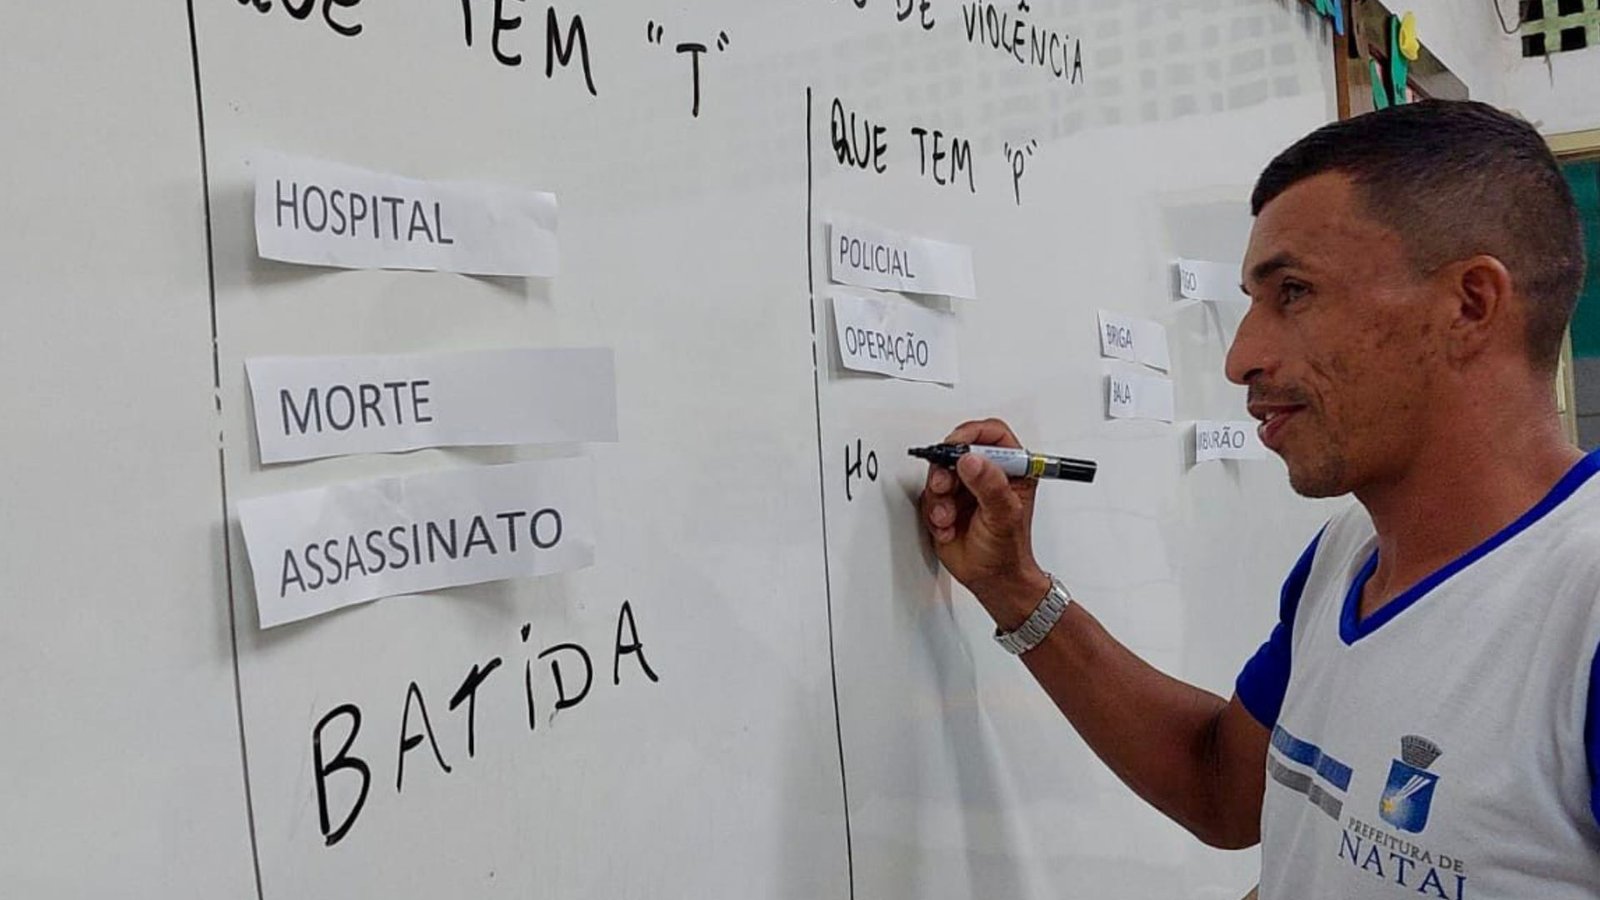 QUE TEM "T"
DE VIOLÊNCIA
HOSPITAL
MORTE
ASSASSINATO
BATIDA
QUE TEM "P"
POLICIAL
OPERAÇÃO
HO
BRIGA
BALA
PREFEITURA DE
NATAL